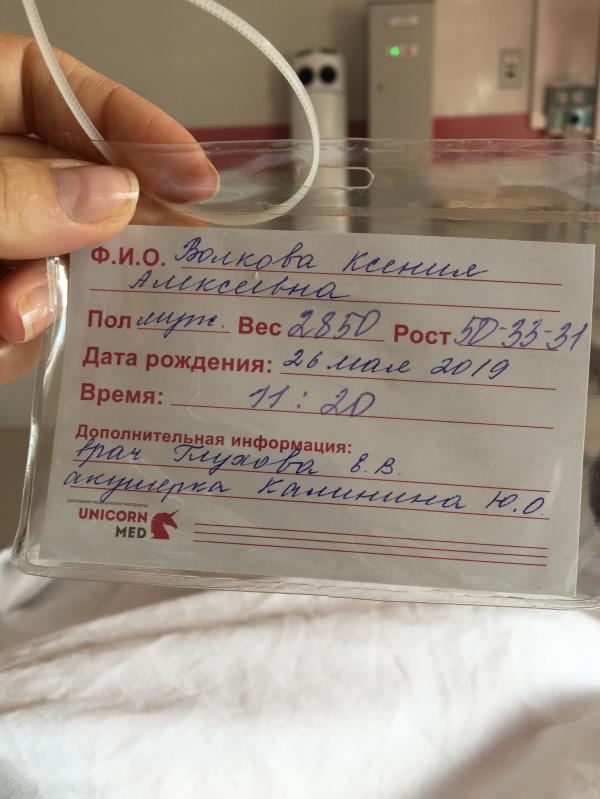 Ф.И.О. Волкова Ксения
Алексеевна
Пол муж. Вес 2850 Рост 50-33-31
Дата рождения: 26 мая 2019
Время: 11:20
Дополнительная информация:
врач Глухова Е.В.
акушерка Калинина Ю.О.
расходные медицинские материалы
UNICORN
MED